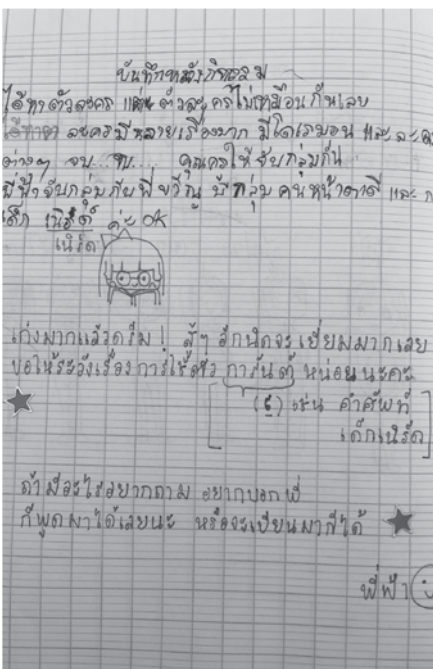 บันทึกหลังกิจกรรม
ได้หาตัวละคร แต่ตัวละครไม่เหมือนกันเลย
ละครมีหลายเรื่องมาก มีโดเรมอน และละค
ต่างๆ จบ จบ... คุณครูให้จับกลุ่มกัน
พี่ฟ้าจับกลุ่มกับพี่ มีกลุ่ม คนหน้าตาดี และ ก
เด็ก เนิร์ด์ ค่ะ OK
เนิร์ด
เก่งมากแล้วครีม! สู้ๆ อีกนิดจะเยี่ยมมากเลย
ขอให้ระวังเรื่อง การใช้ตัว การันต์ หน่อยนะคะ
( ์ ) เช่น คำศัพท์
เด็กเนิร์ด
ถ้ามีอะไรอยากถาม อยากบอกพี่
ก็พูดมาได้เลยนะ หรือจะเขียนมาก็ได้
พี่ฟ้า